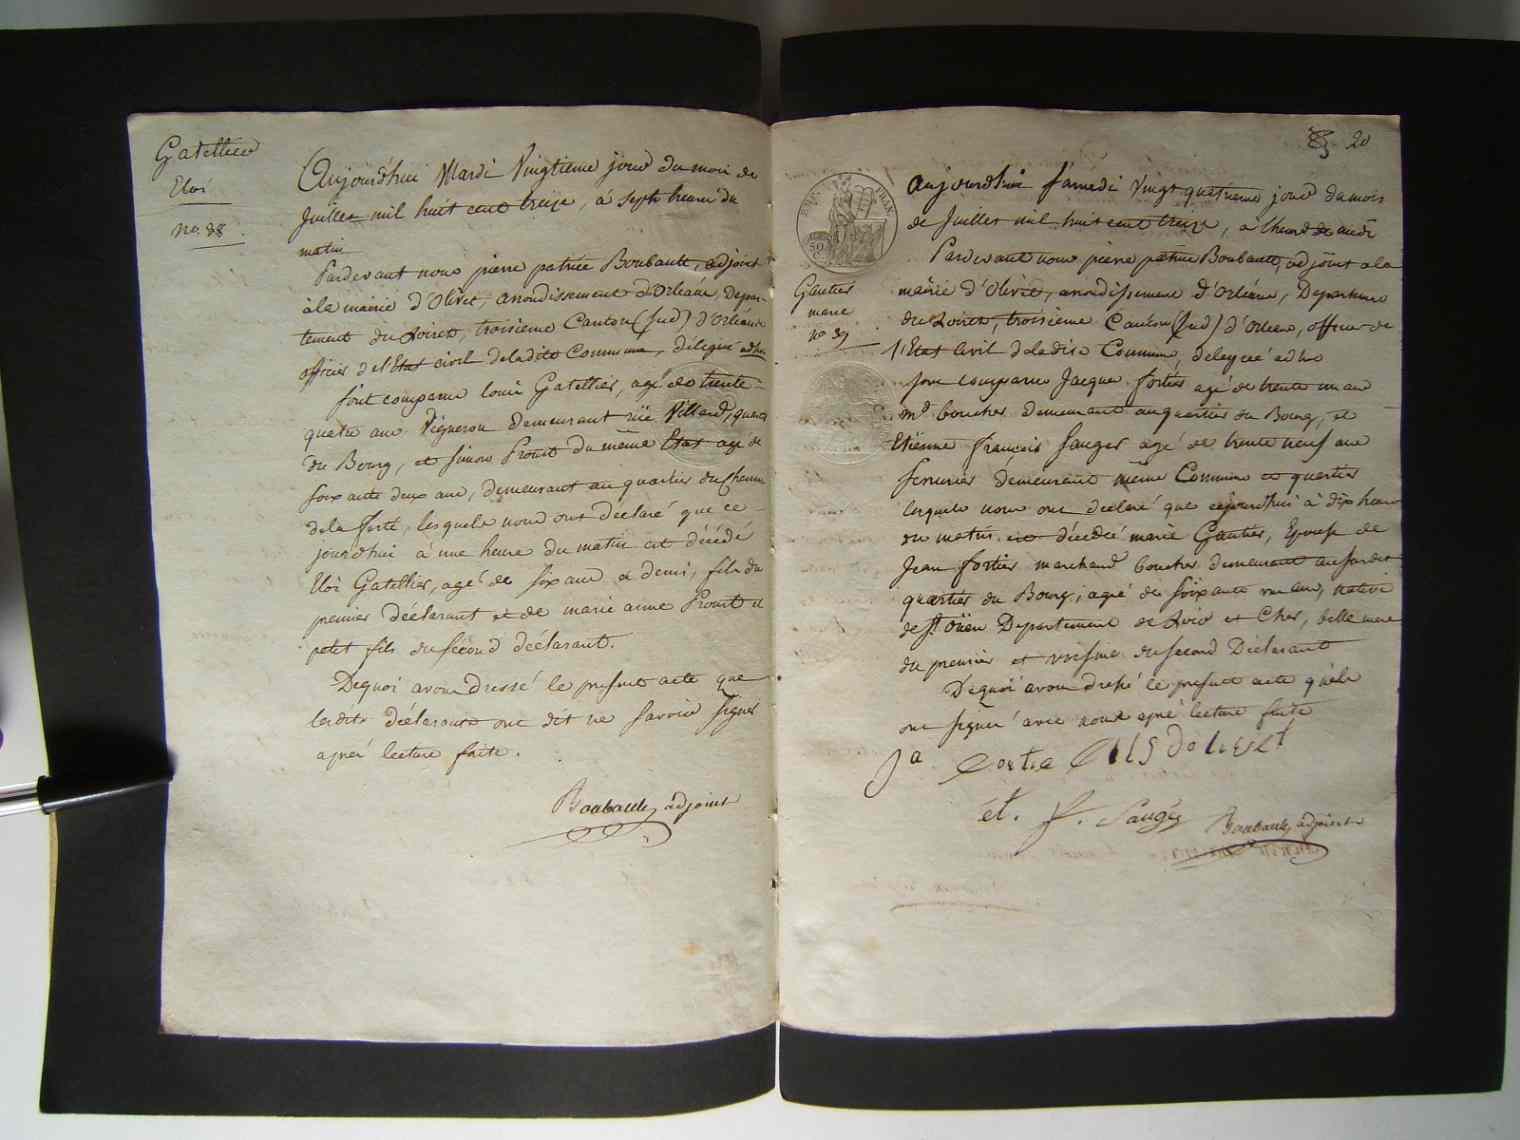 Gatellier
Eloi
no. 38
Aujourd'hui Mardi Vingtieme jour du mois de
Juillet mil huit cent treize, à sept heures du
matin
Pardevant nous pierre patrice Boubault, adjoint
à la mairie d'Olivet, arrondissement d'Orléans, Depar-
tement du Loiret, troisieme Canton (Sud) d'Orléans
officier de l'Etat civil de ladite Commune, délégué adhoc
sont comparus louis Gatellier, agé de trente-
quatre ans Vigneron demeurant rüe Villard, quartier
du Bourg, et Simon Prout du même Etat agé de
soixante deux ans, demeurant au quartier du Chemin
de la ferté, lesquels nous ont déclaré que ce-
jourd'hui à une heure du matin est décédé
Eloi Gatellier, agé de six ans et demi, fils du
premier déclarant et de marie anne Prout et
petit fils du sécond déclarant.
De quoi avons dressé le présent acte que
lesdits déclarants ont dit ne savoir signer
après lecture faite.
Boubault, adjoint
20
EMP. FRAN.
50
C.
Gautier
marie
no 39
Aujourdhui Samedi Vingt quatrieme jour du mois
de Juillet mil huit cent treize, a lheure de midi
Pardevant nous pierre patrice Boubault, adjoint a la
mairie d'Olivet, arrondissement d'Orléans, Departement
du Loiret, troisieme Canton (Sud) d'Orleans, officier de
l'Etat Civil de ladite Commune, délégué ad hoc
sont comparus Jacques fortier agé de trente un ans
md boucher demeurant au quartier du Bourg, et
Etienne françois Sauger agé de trente neuf ans
serrurier demeurant même Commune et quartier
lesquels nous ont déclaré que cejourdhui à dix heures
du matin est décédée marie Gautier, Epouse de
Jean fortier marchand boucher demeurant au susdit
quartier du Bourg, agée de soixante un ans, native
de St Oüen Departement de Loir et Cher, belle mere
du premier et voisine du second Déclarant
De quoi avons dressé le présent acte qu'ils
ont signé avec nous après lecture faite
Ja fortie fils dolivet
ét. f. Saugér Boubault, adjoint